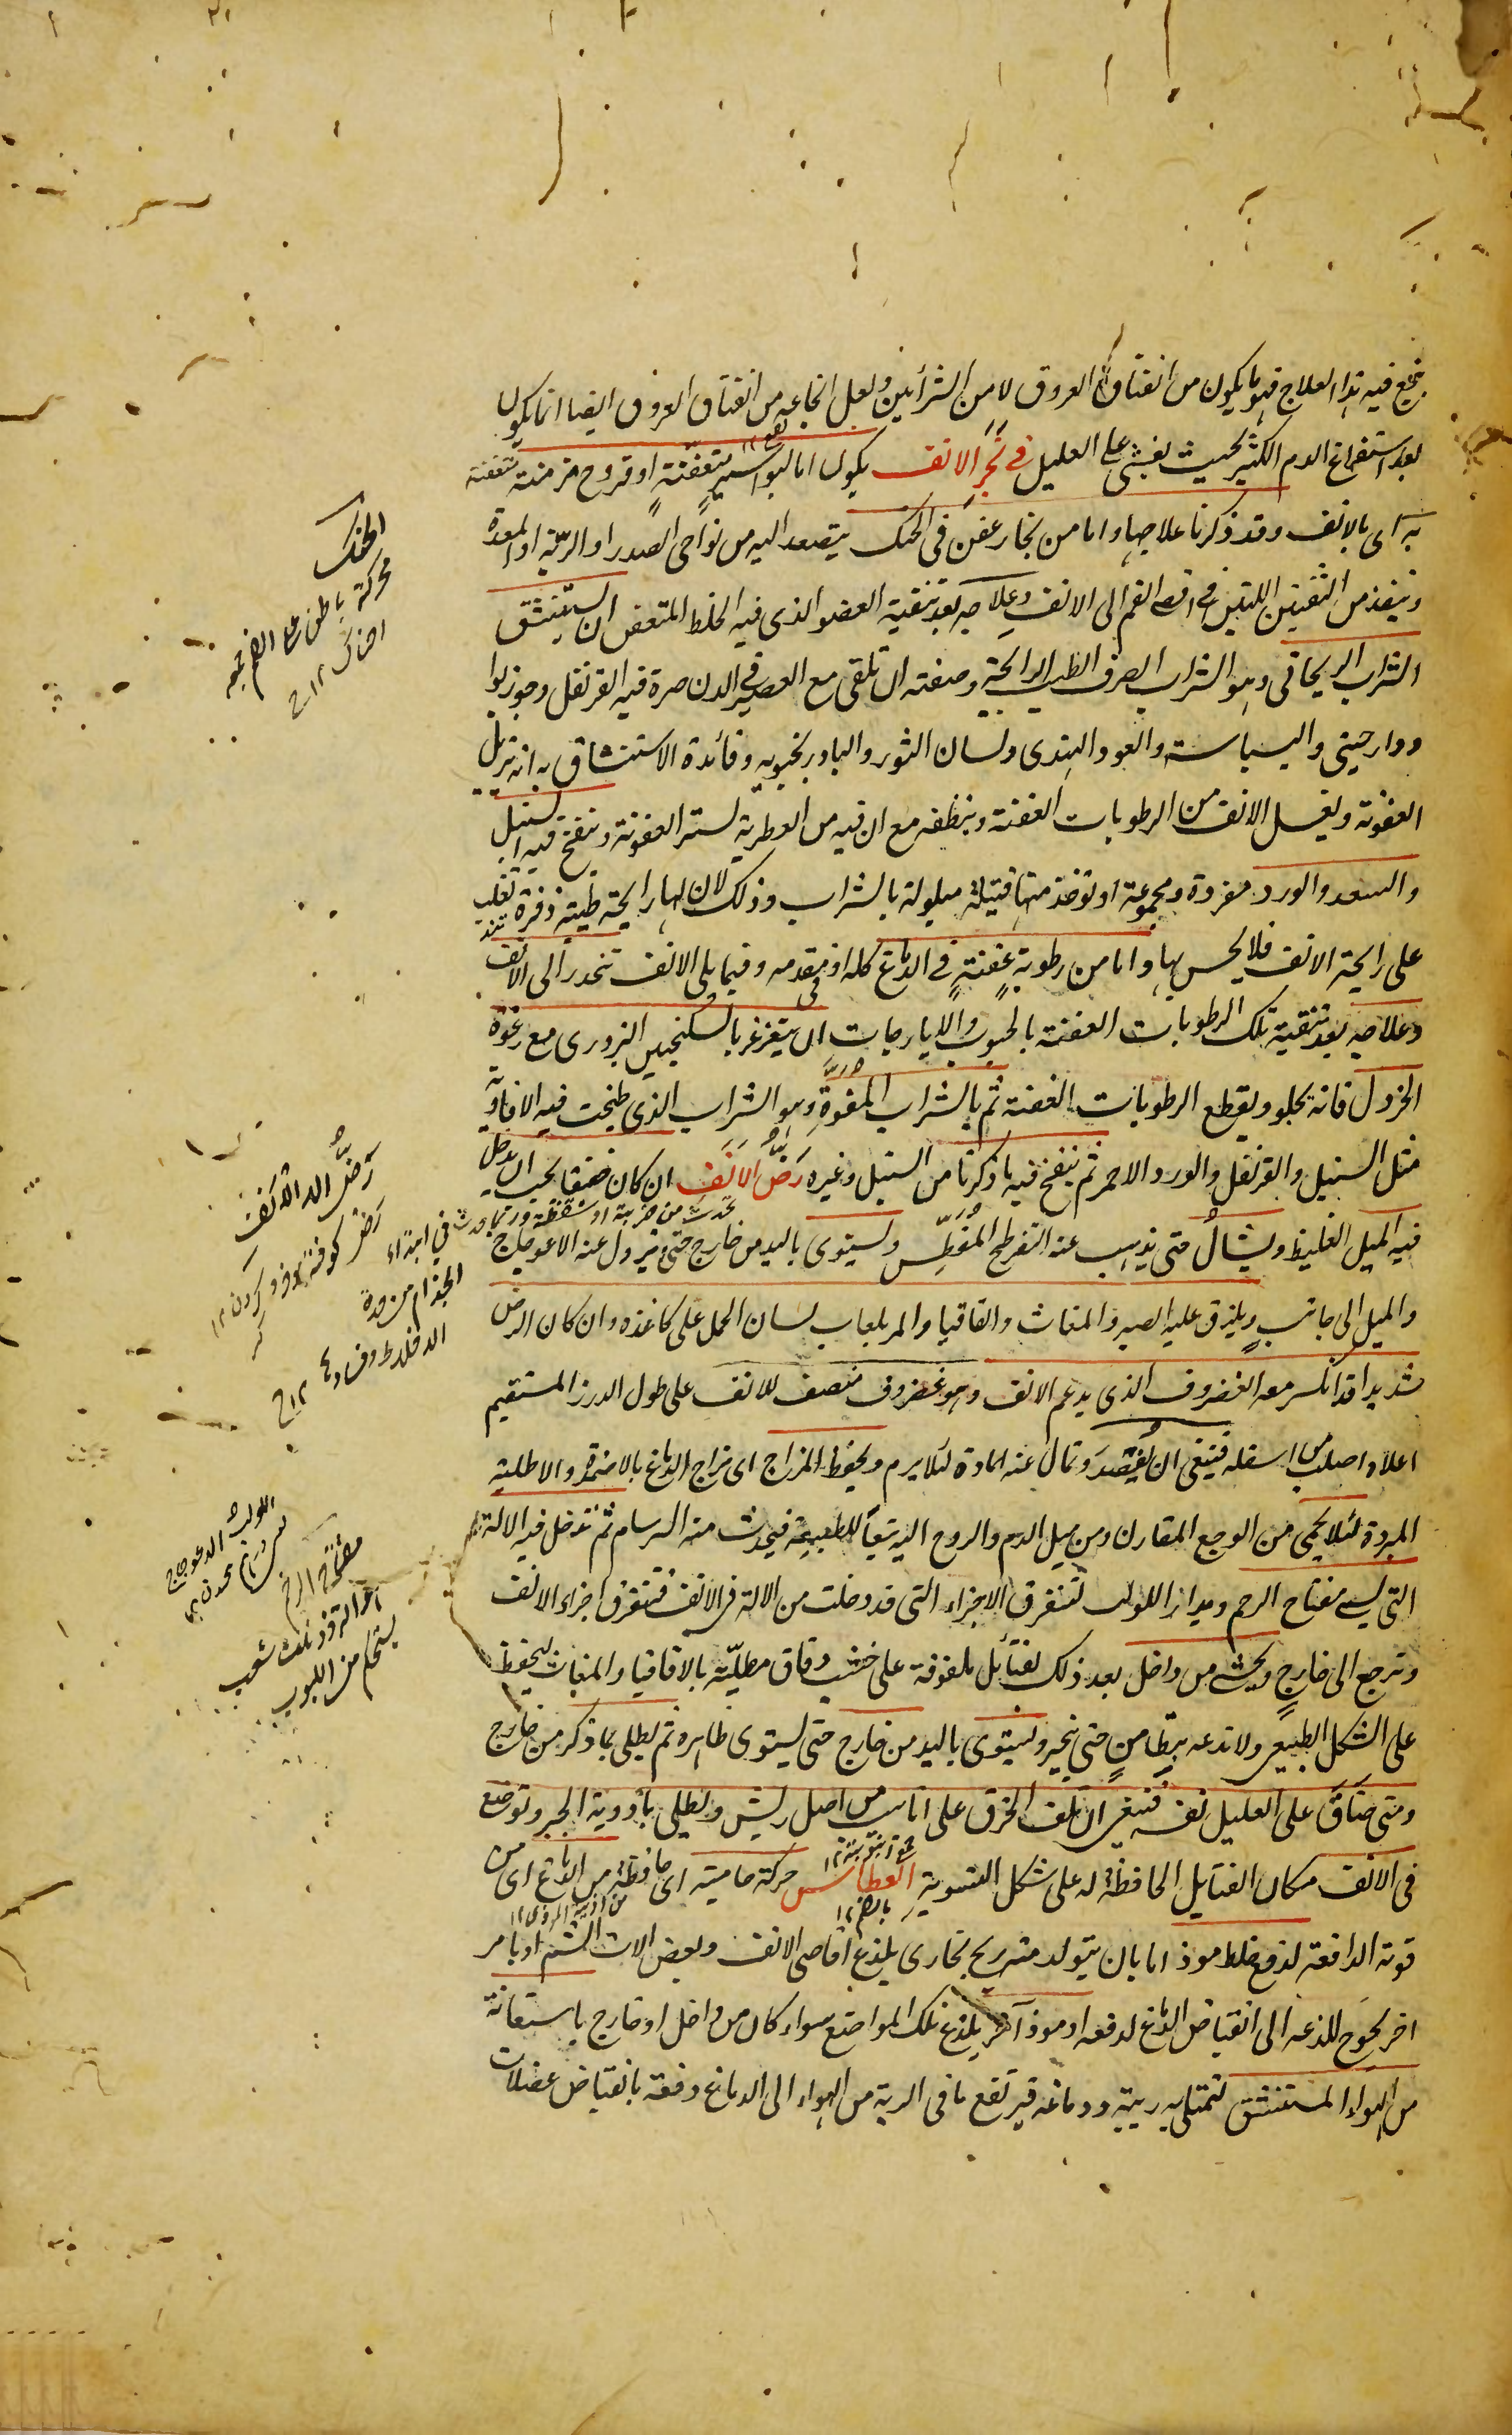 ينجع فيه هذا العلاج فهو ما يكون من انفتاق العروق لا من الشرائين ولعل انجاعه من انفتاق العروق ايضا انما يكون
بعد استفراغ الدم الكثير بحيث يغشى على العليل في بَخَرِ الانف يكون اما لبواسير متعفنةٍ او قروح مزمنة متعفنة
به اى بالانف وقد ذكرنا علاجها واما من بخار عفن فى الحنك يتصعد اليه من نواحى الصدر او الرية او المعدة
وينفذ من الثقبين اللتين في اقصى الفم الى الانف وعلاجه بعد تنقية العضو الذى فيه الخلط المتعفن ان يستنشق
الشراب الريحانى وهو الشراب الصرف الطيب الرايحة وصفته ان تلقى مع العصير فى الدن صرة فيه القرنفل وجوزبوا
ودارصينى والبسباسة والعود الهندى ولسان الثور والبادرنجبويه وفائدة الاستنشاق به انه يزيل
العفونة ويغسل الانف من الرطوبات العفنة وينظفه مع ان فيه من العطرية لستر العفونة وينفخ فيه السنبل
والسعد والورد مفردة ومجموعة او تؤخذ منها فتيلة مبلولة بالشراب وذلك لان لها رايحة طيبة ذفرة تغلب
على رايحة الانف فلا يحس بها واما من رطوبةٍ عفنةٍ في الدماغ كله او فى مقدمه وفيما يلى الانف تنحدر الى الانف
وعلاجه بعد تنقية تلك الرطوبات العفنة بالحبوب والايارجات ان يتغرغر بالسكنجبين البزورى مع رغوة
الخردل فانه يجلو ويقطع الرطوبات العفنة ثم بالشراب المفوه وهو الشراب الذى طبخت فيه الافاويه
مثل السنبل والقرنفل والورد الاحمر ثم ينفخ فيه ما ذكرنا من السنبل وغيره رَضُّ الاَنف ان كان خفيفا يجب ان يدخل
يحدث من ضربة او سقطة وربما يحدث في ابتداء
فيه الميل الغليظ ويشالُ حتى يذهب عنه التفرطح المُفَطِّس ويسوى باليد من خارج حتى ويزول عنه الاعوجاج
والميل الى جانبٍ ويلزق عليه الصبر والمغاث والقاقيا والمر بلعاب لسان الحمل على كاغذة وان كان الرض
شديدا قد انكسر معه الغضروف الذى يدعم الانف وهو غضروف منصف للانف على طول الدرز المستقيم
اعلاه اصلب من اسفله فينبغى ان يُفتصد وتمال عنه المادة لئلا يرم ويحفظ المزاج اى مزاج الدماغ بالاضمدة والاطلية
المبردة لئلا يحمى من الوجع المقارن ومن ميل الدم والروح اليه تبعا للطبيعة فيحدث منه السرسام ثم تدخل فيه الالة
التى يسمى مفتاح الرحم ويدار اللولب لتنفرق الاجزاء التى قد دخلت من الالة فى الانف فتتفرق اجزاء الانف
وترجع الى خارجٍ ويحشى من داخل بعد ذلك بفتائل ملفوفة على خشب دقاق مطليّة بالاقاقيا والمغاث ليحفظ
على الشكل الطبيعى ولا تدعه يتطامن حتى ينجبر ويسوى باليد من خارج حتى يستوى ظاهره ثم يطلى بما ذكر من خارج
ومتى ضاق على العليل نفسه فينبغى ان تلف الخرق على انابيب من اصل ريش ويطلى بأدوية الجبر وتوضع
فى الانف مكان الفتايل الحافظة له على شكل التسوية العطاس حركة حامية اى حافظة من الدماغ اى من
قوته الدافعة لدفع خلط موذ اما بان يتولد منه ريح بخارى يلذع اقاصى الانف وبعض الات الشم او بامر
اخر يحوج للذعه الى انقباض الدماغ لدفعه او موذ آخر يلذع تلك المواضع سواء كان من داخل او خارج باستعانة
من الهواء المستنشق لتمتلى به رييه ودماغه فيرتفع ما فى الرية من الهواء الى الدماغ دفعة بانقباض عضلات
الحنك
محركة باطن اعلى الفم جمعه
احناك ١٢ ح
رَضُّ الانف
رض كوفتن وخرد كردن ١٢
الجذام من حدة
اللولب الاعوجاج
مفتاح الرحم